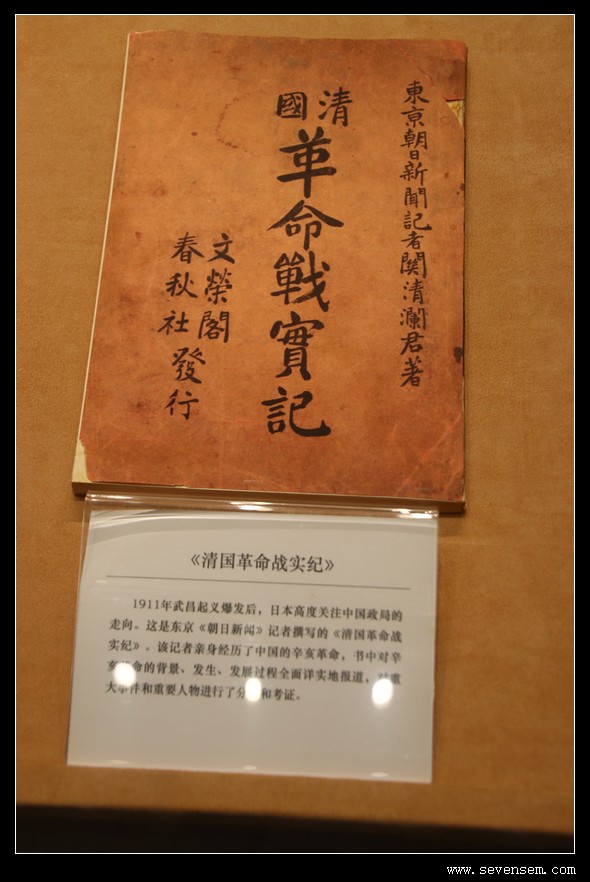 東京朝日新聞記者關清瀾君著
清國
革命戰實記
文榮閣
春秋社
發行
《清国革命战实纪》
1911年武昌起义爆发后，日本高度关注中国政局的
走向。这是东京《朝日新闻》记者撰写的《清国革命战
实纪》。该记者亲身经历了中国的辛亥革命，书中对辛
亥命的背景、发生、发展过程全面详实地报道，重
大事件和重要人物进行了分和考证。
www.sevensem.com